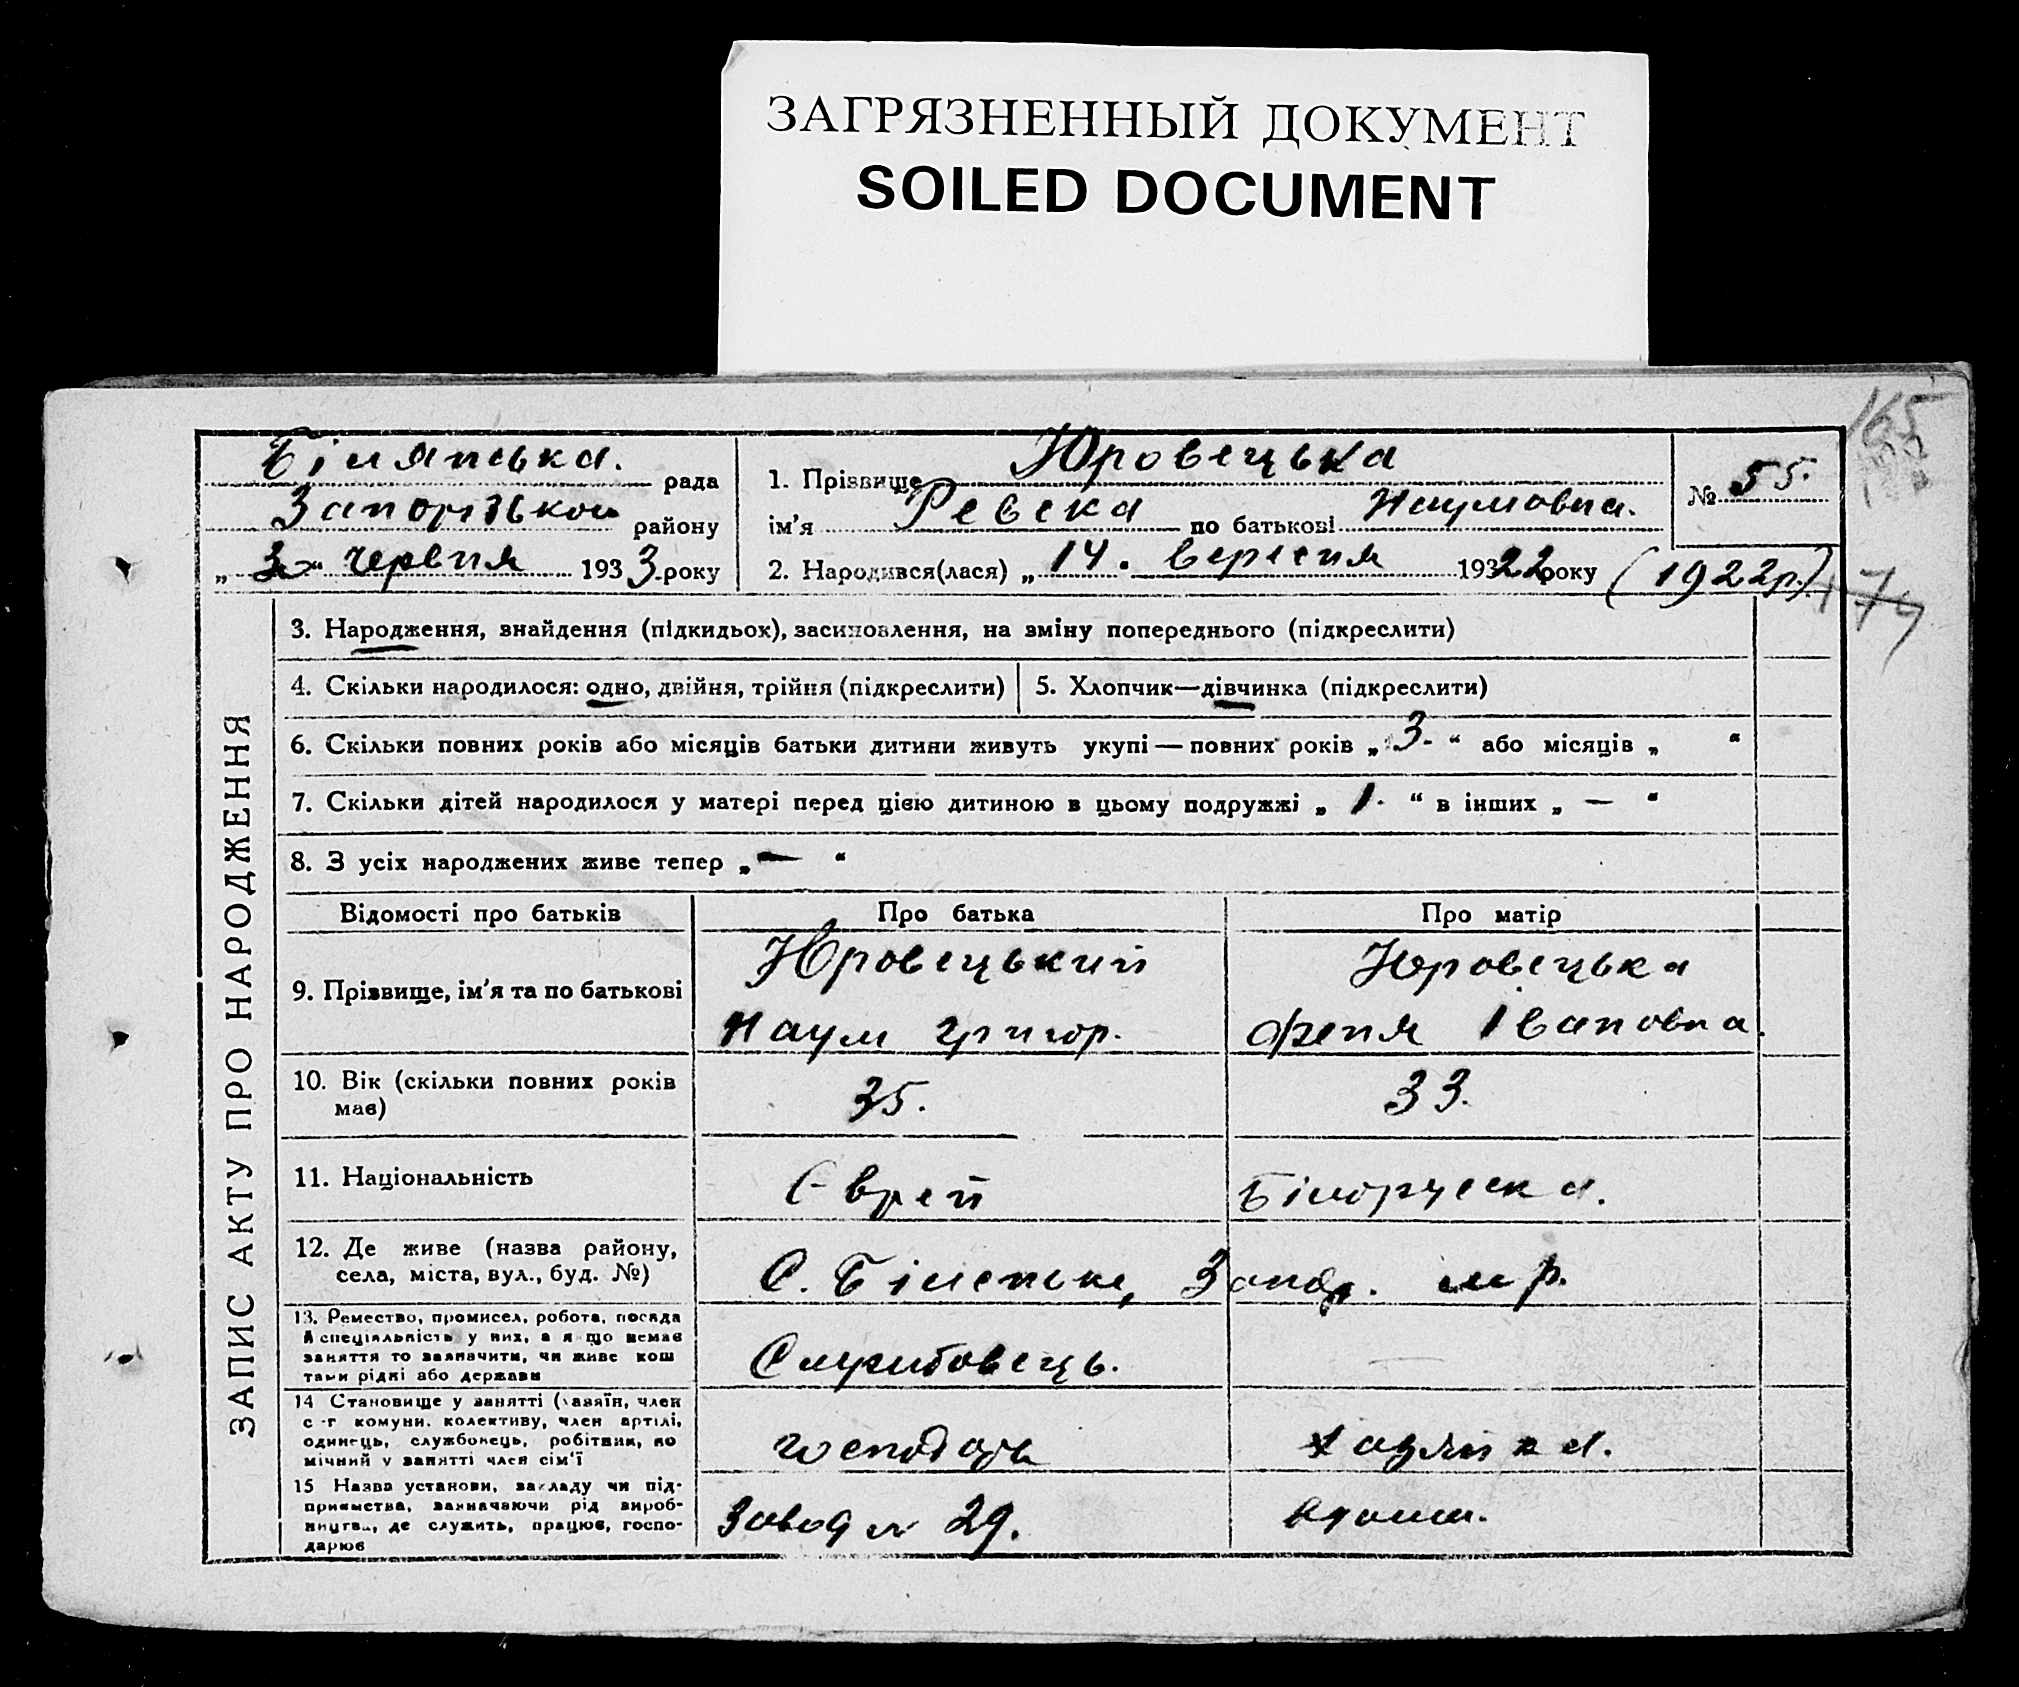 ЗАГРЯЗНЕННЫЙ ДОКУМЕНТ
SOILED DOCUMENT
Білянська. рада
Запорізької району
„30“ червня 1933 року
1. Прізвище Юровецька
ім’я Ревека по батькові Наумовна.
2. Народився(лася) „14. вересня 1922 року (1922р.)
№ 55.
174
ЗАПИС АКТУ ПРО НАРОДЖЕННЯ
3. Народження, знайдення (підкидьох), засиновлення, на зміну попереднього (підкреслити)
4. Скільки народилося: одно, двійня, трійня (підкреслити)
5. Хлопчик—дівчинка (підкреслити)
6. Скільки повних років або місяців батьки дитини живуть укупі — повних років „3.“ або місяців „ “
7. Скільки дітей народилося у матері перед цією дитиною в цьому подружжі „1.“ в інших „ — “
8. З усіх народжених живе тепер „ — “
Відомості про батьків Про батька Про матір
9. Прізвище, ім’я та по батькові
Юровецький
Наум Григор.
Юровецька
Феня Івановна.
10. Вік (скільки повних років
має)
35.
33.
11. Національність
Єврей
Білоруска.
12. Де живе (назва району,
села, міста, вул., буд. №)
С. Біленьке, Запор. м р.
13. Ремество, промисел, робота, посада
й спеціяльність у них, а якщо немає
заняття то зазначити, чи живе кош
тами рідні або держави
Службовець.
—
14 Становище у занятті (хазяїн, член
с-г комуни, колективу, член артілі,
одинець, службовець, робітник, по
мічний у занятті член сім’ї
господарь
хазяйка.
15 Назва установи, закладу чи під-
приємства, зазначаючи рід вироб-
ництва, де служить, працює, госпо-
дарює
Завод № 29.
вдома.